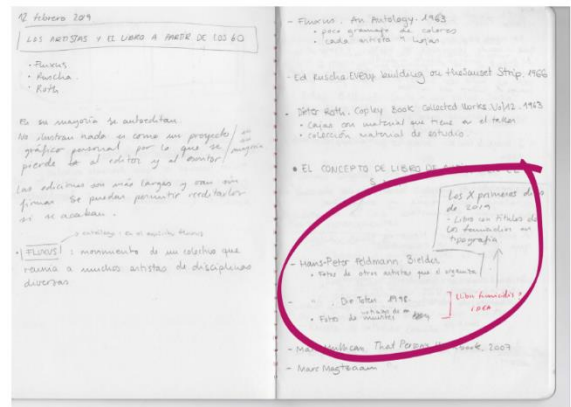 12 febrero 2019
LOS ARTISTAS Y EL LIBRO A PARTIR DE LOS 60
· Fluxus
· Ruscha
· Roth
En su mayoría se autoeditan.
No ilustran nada es como un proyecto
gráfico personal por lo que se
pierde la al editor y al
Las ediciones son más largas y van sin
firmar. Se pueden permitir reeditarlos
si se acaban.
· FLUXUS : movimiento de un colectivo que
reunía a muchos artistas de disciplinas
diversas
- Fluxus. An Antology. 1963
· poco gramaje de colores
· cada artista hojas
- Ed Ruscha. Every building on the Sunset Strip. 1966
- Dieter Roth. Copley Book. Collected Works. Vol 12. 1963
· cajas con material que tiene en el taller
· colección material de estudio.
• EL CONCEPTO DE LIBRO DE
Los X primeros
de 2019
· Libro con títulos de
los fumadios en
tipografía
- Hans-Peter Feldmann Bielder
· Fotos de otros artistas que él organiza
- " . Die Toten. 1998.
· Fotos de muertes
Libro
- That Person 2007
- Marc